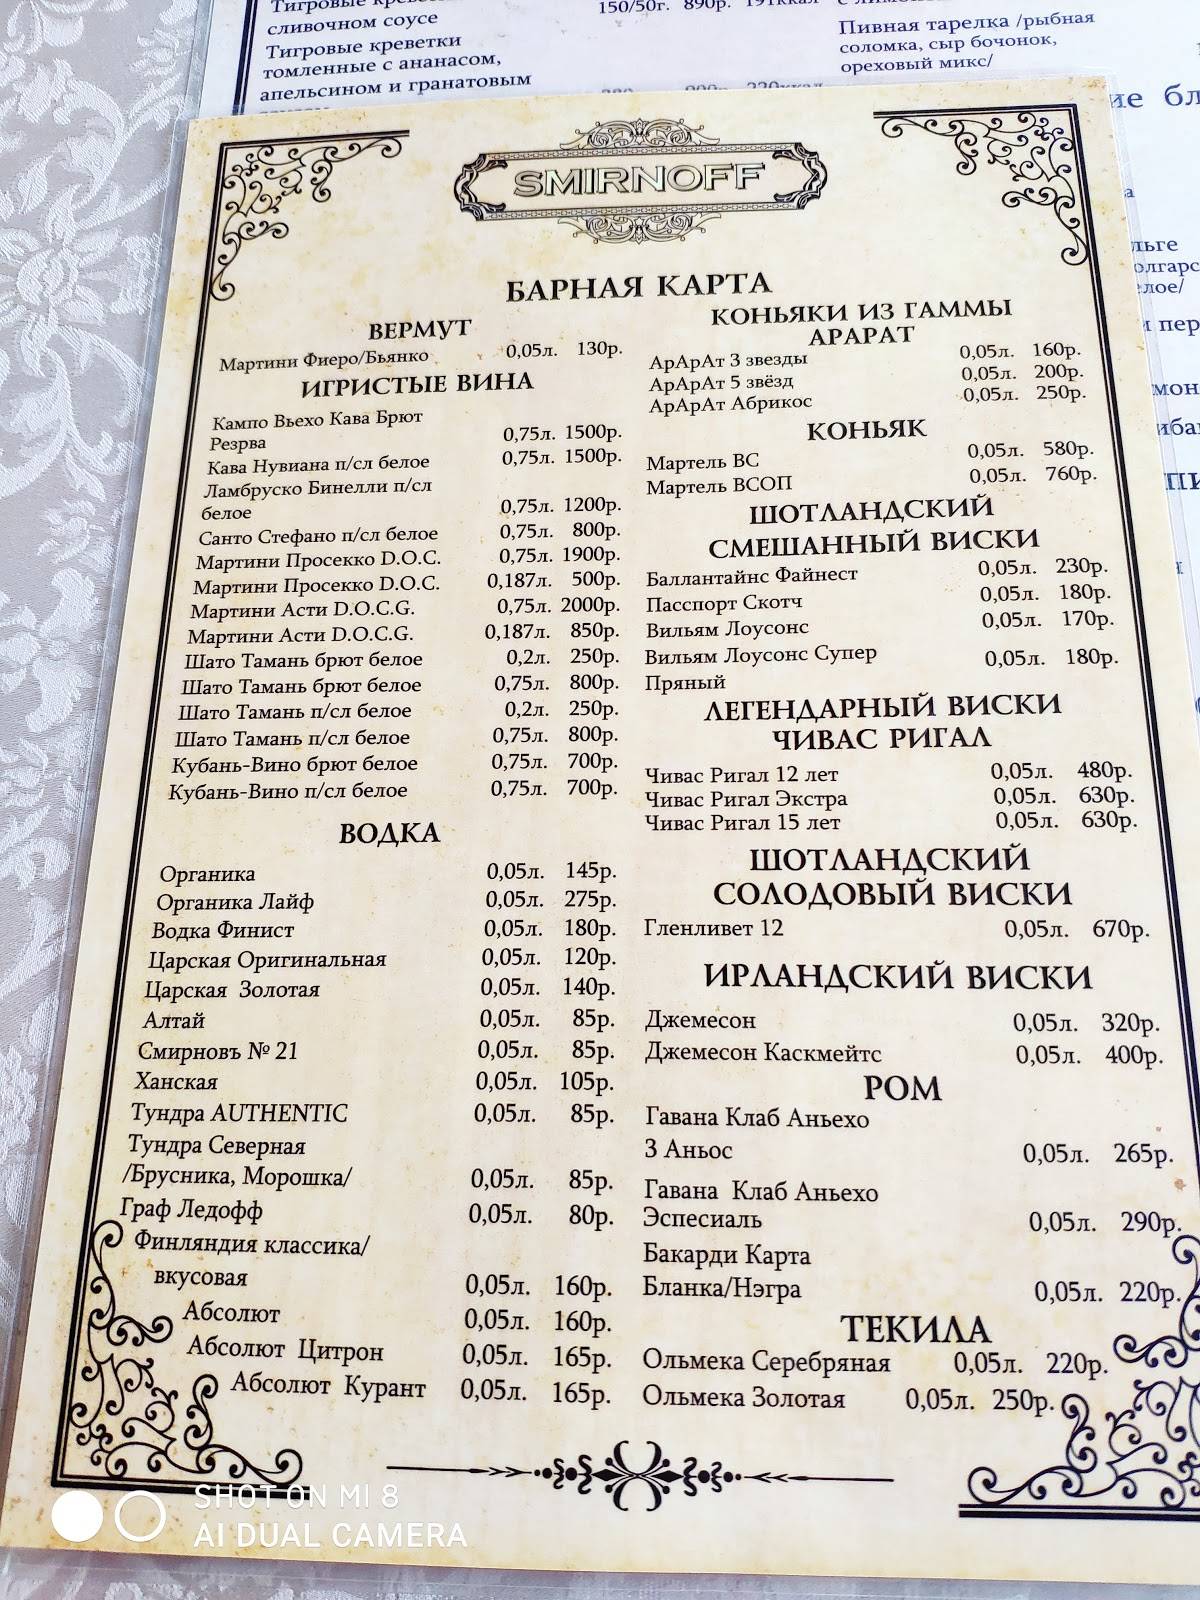 Тигровые
сливочном соусе
150/50г. 890р. 191ккал
Тигровые креветки
томленные с ананасом,
апельсином и гранатовым
Пивная тарелка /рыбная
соломка, сыр бочонок,
ореховый микс/
SMIRNOFF
БАРНАЯ КАРТА
ВЕРМУТ
Мартини Фиеро/Бьянко 0,05л. 130р.
ИГРИСТЫЕ ВИНА
Кампо Вьехо Кава Брют
Резрва 0,75л. 1500р.
Кава Нувиана п/сл белое 0,75л. 1500р.
Ламбруско Бинелли п/сл
белое 0,75л. 1200р.
Санто Стефано п/сл белое 0,75л. 800р.
Мартини Просекко D.O.C. 0,75л. 1900р.
Мартини Просекко D.O.C. 0,187л. 500р.
Мартини Асти D.O.C.G. 0,75л. 2000р.
Мартини Асти D.O.C.G. 0,187л. 850р.
Шато Тамань брют белое 0,2л. 250р.
Шато Тамань брют белое 0,75л. 800р.
Шато Тамань п/сл белое 0,2л. 250р.
Шато Тамань п/сл белое 0,75л. 800р.
Кубань-Вино брют белое 0,75л. 700р.
Кубань-Вино п/сл белое 0,75л. 700р.
ВОДКА
Органика 0,05л. 145р.
Органика Лайф 0,05л. 275р.
Водка Финист 0,05л. 180р.
Царская Оригинальная 0,05л. 120р.
Царская Золотая 0,05л. 140р.
Алтай 0,05л. 85р.
Смирновъ № 21 0,05л. 85р.
Ханская 0,05л. 105р.
Тундра AUTHENTIC 0,05л. 85р.
Тундра Северная
/Брусника, Морошка/ 0,05л. 85р.
Граф Ледофф 0,05л. 80р.
Финляндия классика/
вкусовая 0,05л. 160р.
Абсолют 0,05л. 160р.
Абсолют Цитрон 0,05л. 165р.
Абсолют Курант 0,05л. 165р.
КОНЬЯКИ ИЗ ГАММЫ
АРАРАТ
АрАрАт 3 звезды 0,05л. 160р.
АрАрАт 5 звёзд 0,05л. 200р.
АрАрАт Абрикос 0,05л. 250р.
КОНЬЯК
Мартель ВС 0,05л. 580р.
Мартель ВСОП 0,05л. 760р.
ШОТЛАНДСКИЙ
СМЕШАННЫЙ ВИСКИ
Баллантайнс Файнест 0,05л. 230р.
Пасспорт Скотч 0,05л. 180р.
Вильям Лоусонс 0,05л. 170р.
Вильям Лоусонс Супер 0,05л. 180р.
Пряный
ЛЕГЕНДАРНЫЙ ВИСКИ
ЧИВАС РИГАЛ
Чивас Ригал 12 лет 0,05л. 480р.
Чивас Ригал Экстра 0,05л. 630р.
Чивас Ригал 15 лет 0,05л. 630р.
ШОТЛАНДСКИЙ
СОЛОДОВЫЙ ВИСКИ
Гленливет 12 0,05л. 670р.
ИРЛАНДСКИЙ ВИСКИ
Джемесон 0,05л. 320р.
Джемесон Каскмейтс 0,05л. 400р.
РОМ
Гавана Клаб Аньехо
3 Аньос 0,05л. 265р.
Гавана Клаб Аньехо
Эспесиаль 0,05л. 290р.
Бакарди Карта
Бланка/Нэгра 0,05л. 220р.
ТЕКИЛА
Ольмека Серебряная 0,05л. 220р.
Ольмека Золотая 0,05л. 250р.
SHOT ON MI 8
AI DUAL CAMERA